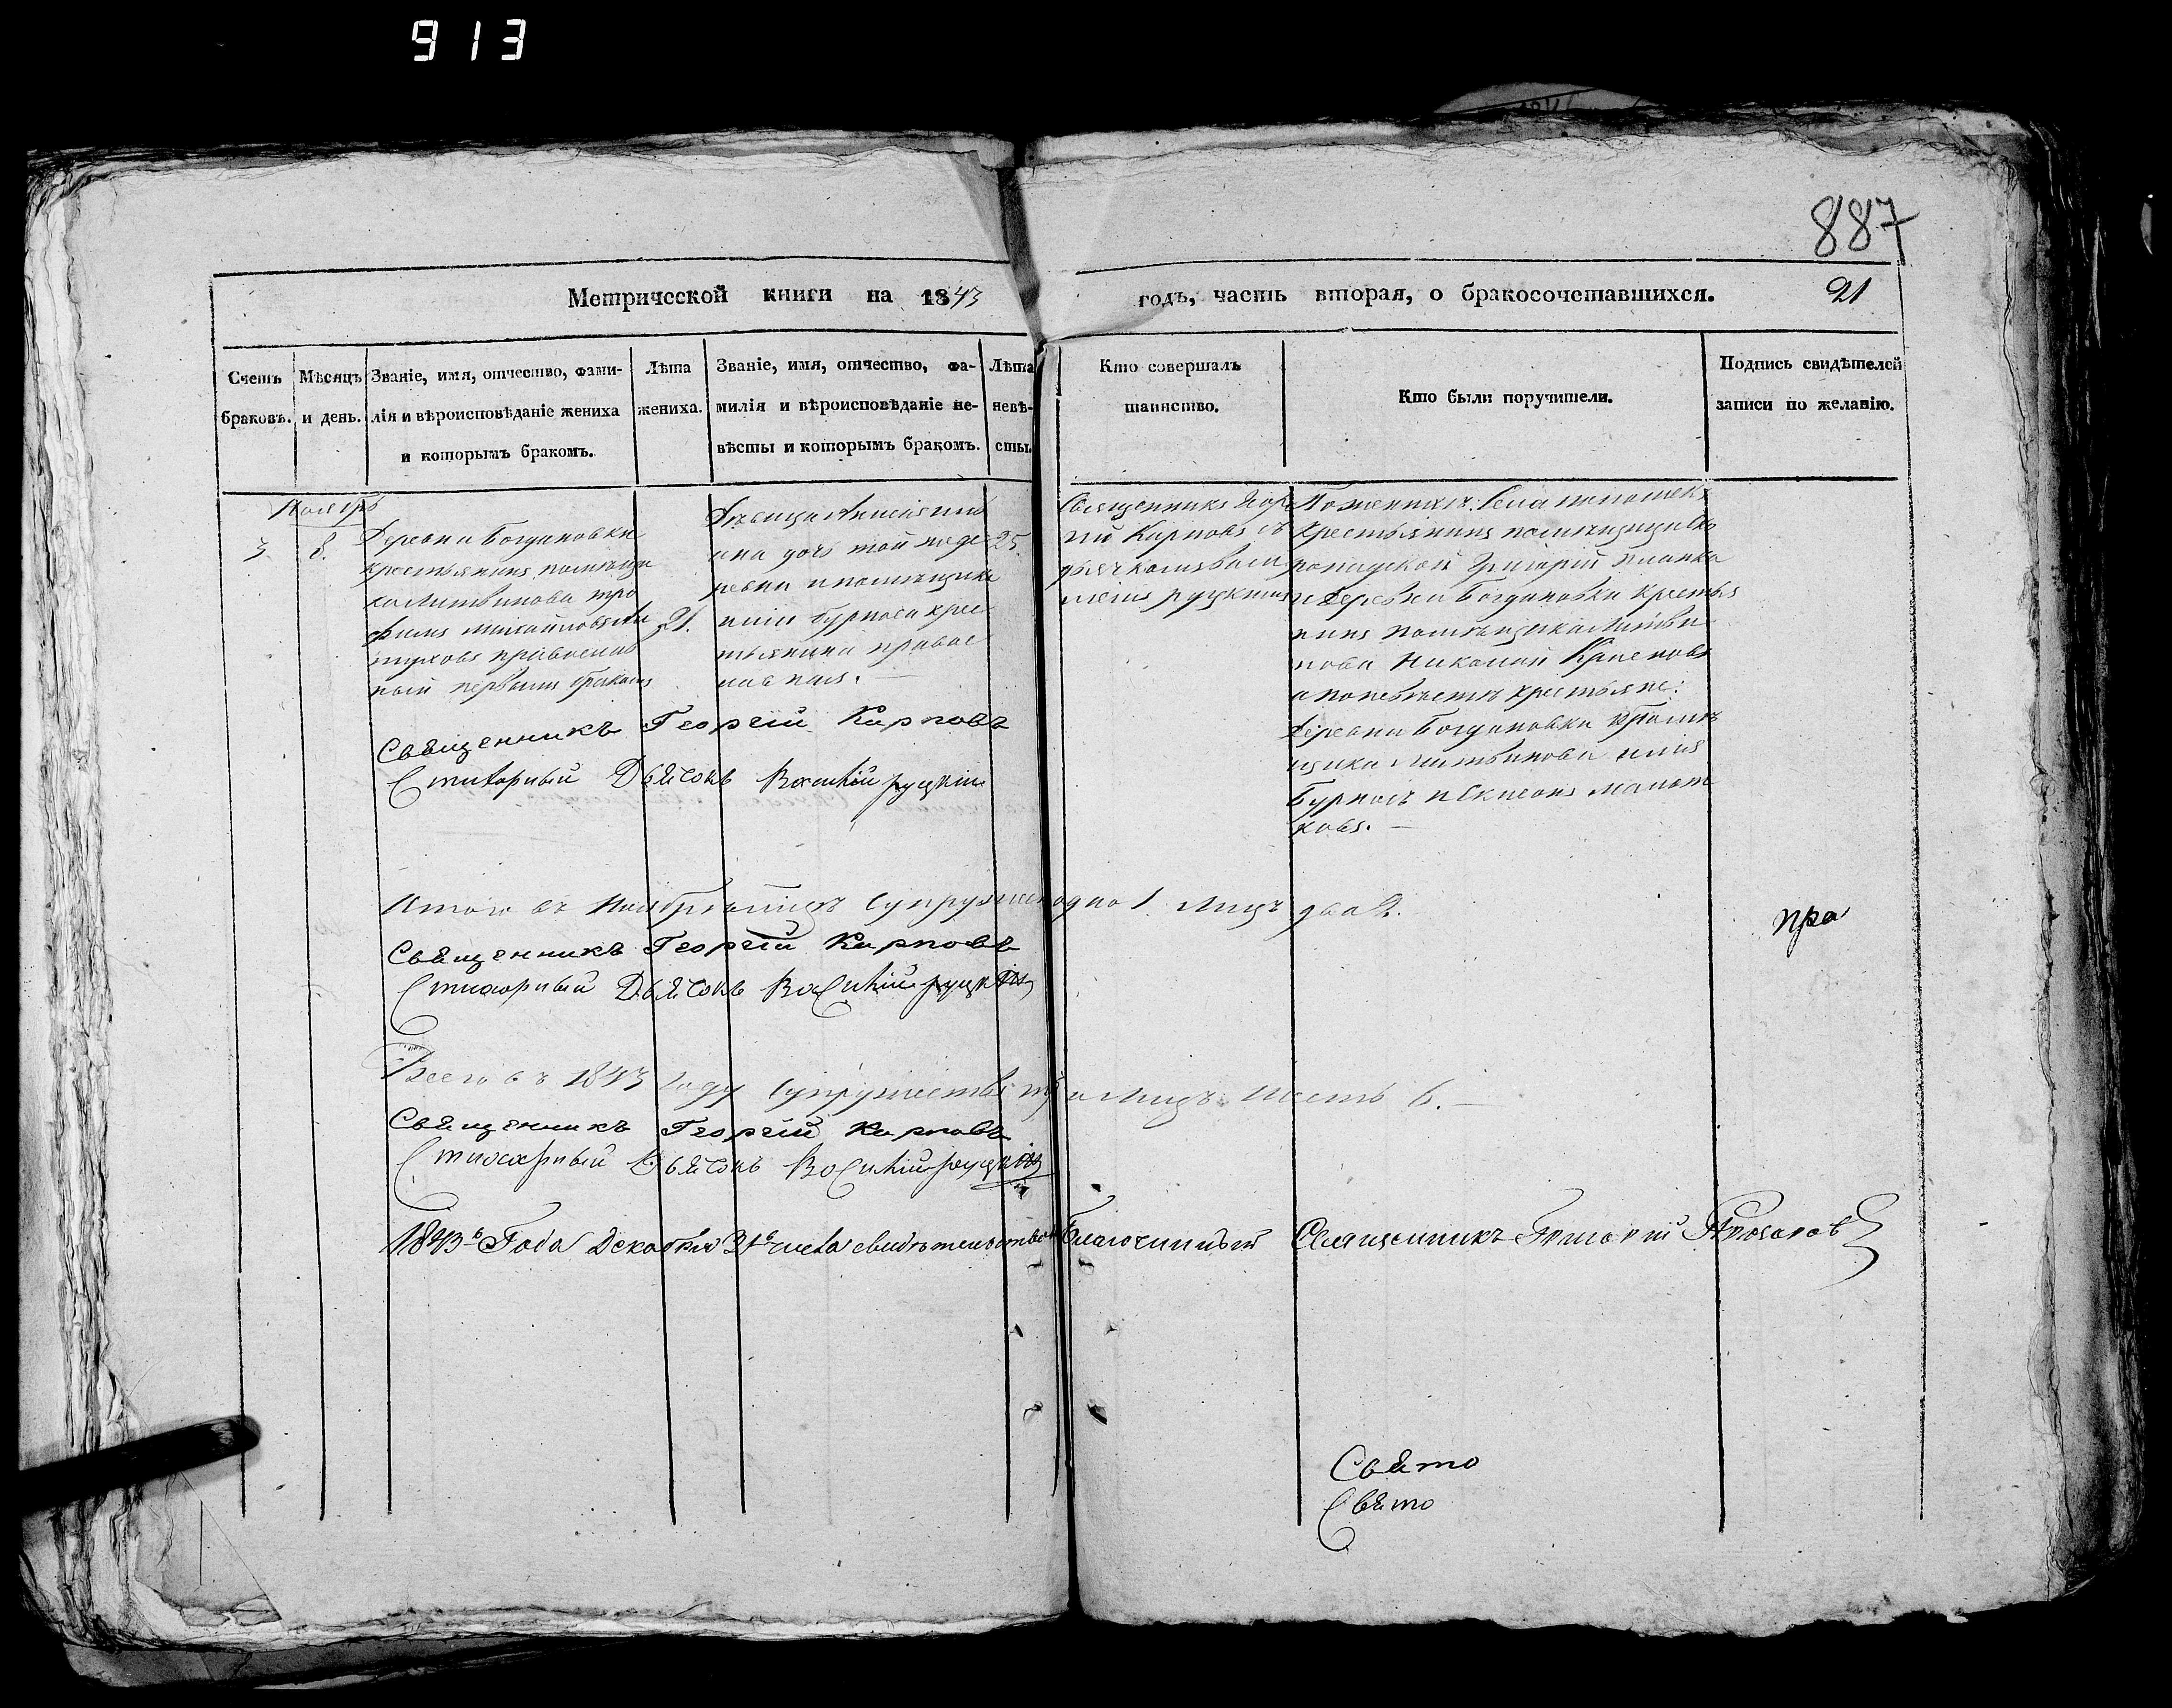 913
887
Метрической книги на 1843
годъ, часть вторая, о бракосочетавшихся.
21
Счетъ браковъ.
Мѣсяцъ и день.
Званіе, имя, отчество, фами-
лія и вѣроисповѣданіе жениха
и которымъ бракомъ.
Лѣта
жениха.
Званіе, имя, отчество, фа-
милія и вѣроисповѣданіе не-
вѣсты и которымъ бракомъ.
Лѣта
невѣ-
сты.
Кто совершалъ
таинство.
Кто были поручители.
Подпись свидѣтелей
записи по желанію.
Ноября
3
8.
Деревни Богдановки
крестьянинъ помѣщи
ка Литвинова тро
фимъ михайловъ
православ
ный первымъ бракомъ
21.
Дѣвица
дочь той же де
ревни и помѣщика
бурноса крес
тьянина правос
лавная.
25.
Священникъ Геор
гій Карповъ съ
дьячкомъ васи
ліемъ руцкимъ
По женихѣ: Села
крестьянинъ помѣщицы Ско
ропадской Григорій
и деревни Богдановки крестья
нинъ помѣщика Литви
нова Николай
а по невѣстѣ крестьяне:
Деревни Богдановки помѣ
щика Литвинова
Бурносъ и
ковъ.
Священникъ Георгій Карповъ
Стихарный Дьячокъ Василій руцкій
Итого въ Ноябрѣ м̃цѣ Супружес одно 1. лицъ два 2.
пра
Священникъ Георгій Карповъ
Стихарный Дьячокъ Василій руцкій
Всего въ 1843 году Супружествъ три лицъ шесть 6.
Священникъ Георгій Карповъ
Стихарный Дьячокъ Василій руцкій
1843го Года Декабря 31го числа свидѣтельствовалъ Благочинный Священникъ Григорій
Свято
Свято